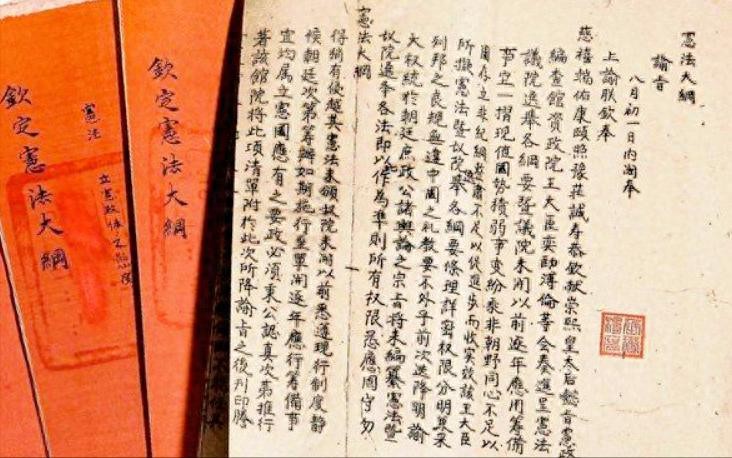 憲法大綱
諭旨
八月初一日内閣奉
上諭朕欽奉
慈禧端佑康頤昭豫莊誠寿恭欽献崇熙皇太后懿旨憲政
編查館資政院王大臣奕劻溥倫等会奏進呈憲法
議院選舉各綱要暨議院未開以前逐年應用籌備
事宜一摺現值國势積弱事变紛乘非朝野同心不足以
圖存立非紀綱整肅不足以促進步而收实效該王大臣
所擬憲法暨议院選舉各綱要條理詳密权限分明兼采
列邦之良規無違中國之礼教要不外乎前次迭降明諭
大权統於朝廷庶政公諸輿論之宗旨将来編纂憲法暨
议院選举各法即以作為準則所有权限悉應固守勿
憲法大綱
得稍有侵越其憲法未頒议院未開以前悉遵現行制度静
候朝廷次第籌辦如期施行至單開逐年應行籌備事
宜均属立憲國應有之要政必須秉公認真次第推行
著該館院将此項清單附於此次所降諭旨之後刊印謄
欽定憲法大綱
憲法
立憲政体
欽定憲法大綱